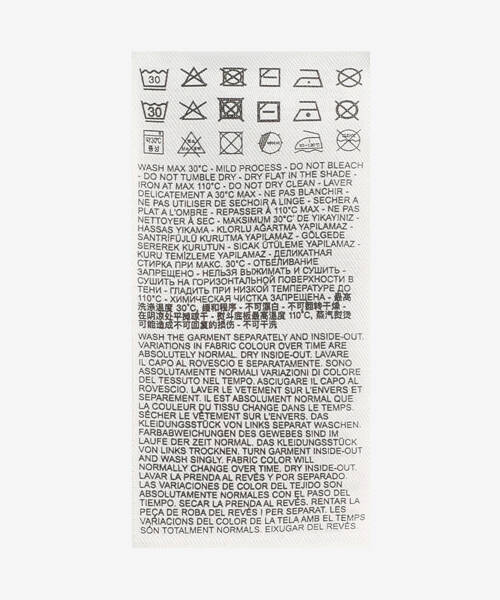 30
30
WASH MAX 30°C - MILD PROCESS - DO NOT BLEACH
- DO NOT TUMBLE DRY - DRY FLAT IN THE SHADE -
IRON AT MAX 110°C - DO NOT DRY CLEAN - LAVER
DELICATEMENT A 30°C MAX - NE PAS BLANCHIR -
NE PAS UTILISER DE SECHOIR A LINGE - SECHER A
PLAT A L'OMBRE - REPASSER À 110°C MAX - NE PAS
NETTOYER À SEC - MAKSIMUM 30°C DE YIKAYINIZ -
HASSAS YIKAMA - KLORLU AĞARTMA YAPILAMAZ -
SANTRİFÜJLÜ KURUTMA YAPILMAZ - GÖLGEDE
SEREREK KURUTUN - SICAK ÜTÜLEME YAPILAMAZ -
KURU TEMİZLEME YAPILAMAZ - ДЕЛИКАТНАЯ
СТИРКА ПРИ МАКС. 30°C - ОТБЕЛИВАНИЕ
ЗАПРЕЩЕНО - НЕЛЬЗЯ ВЫЖИМАТЬ И СУШИТЬ -
СУШИТЬ НА ГОРИЗОНТАЛЬНОЙ ПОВЕРХНОСТИ В
ТЕНИ - ГЛАДИТЬ ПРИ НИЗКОЙ ТЕМПЕРАТУРЕ ДО
110°C - ХИМИЧЕСКАЯ ЧИСТКА ЗАПРЕЩЕНА - 最高
洗涤温度 30°C, 缓和程序 - 不可漂白 - 不可翻转干燥 -
在阴凉处平摊晾干 - 熨斗底板最高温度 110°C, 蒸汽熨烫
可能造成不可回复的损伤 - 不可干洗
WASH THE GARMENT SEPARATELY AND INSIDE-OUT.
VARIATIONS IN FABRIC COLOUR OVER TIME ARE
ABSOLUTELY NORMAL. DRY INSIDE-OUT. LAVARE
IL CAPO AL ROVESCIO E SEPARATAMENTE. SONO
ASSOLUTAMENTE NORMALI VARIAZIONI DI COLORE
DEL TESSUTO NEL TEMPO. ASCIUGARE IL CAPO AL
ROVESCIO. LAVER LE VETEMENT SUR L'ENVERS ET
SEPAREMENT. IL EST ABSOLUMENT NORMAL QUE
LA COULEUR DU TISSU CHANGE DANS LE TEMPS.
SÉCHER LE VÊTEMENT SUR L'ENVERS. DAS
KLEIDUNGSSTÜCK VON LINKS SEPARAT WASCHEN.
FARBABWEICHUNGEN DES GEWEBES SIND IM
LAUFE DER ZEIT NORMAL. DAS KLEIDUNGSSTÜCK
VON LINKS TROCKNEN. TURN GARMENT INSIDE-OUT
AND WASH SINGLY. FABRIC COLOR WILL
NORMALLY CHANGE OVER TIME. DRY INSIDE-OUT.
LAVAR LA PRENDA AL REVÉS Y POR SEPARADO.
LAS VARIACIONES DE COLOR DEL TEJIDO SON
ABSOLUTAMENTE NORMALES CON EL PASO DEL
TIEMPO. SECAR LA PRENDA AL REVÉS. RENTAR LA
PEÇA DE ROBA DEL REVÉS I PER SEPARAT. LES
VARIACIONS DEL COLOR DE LA TELA AMB EL TEMPS
SÓN TOTALMENT NORMALS. EIXUGAR DEL REVÉS.